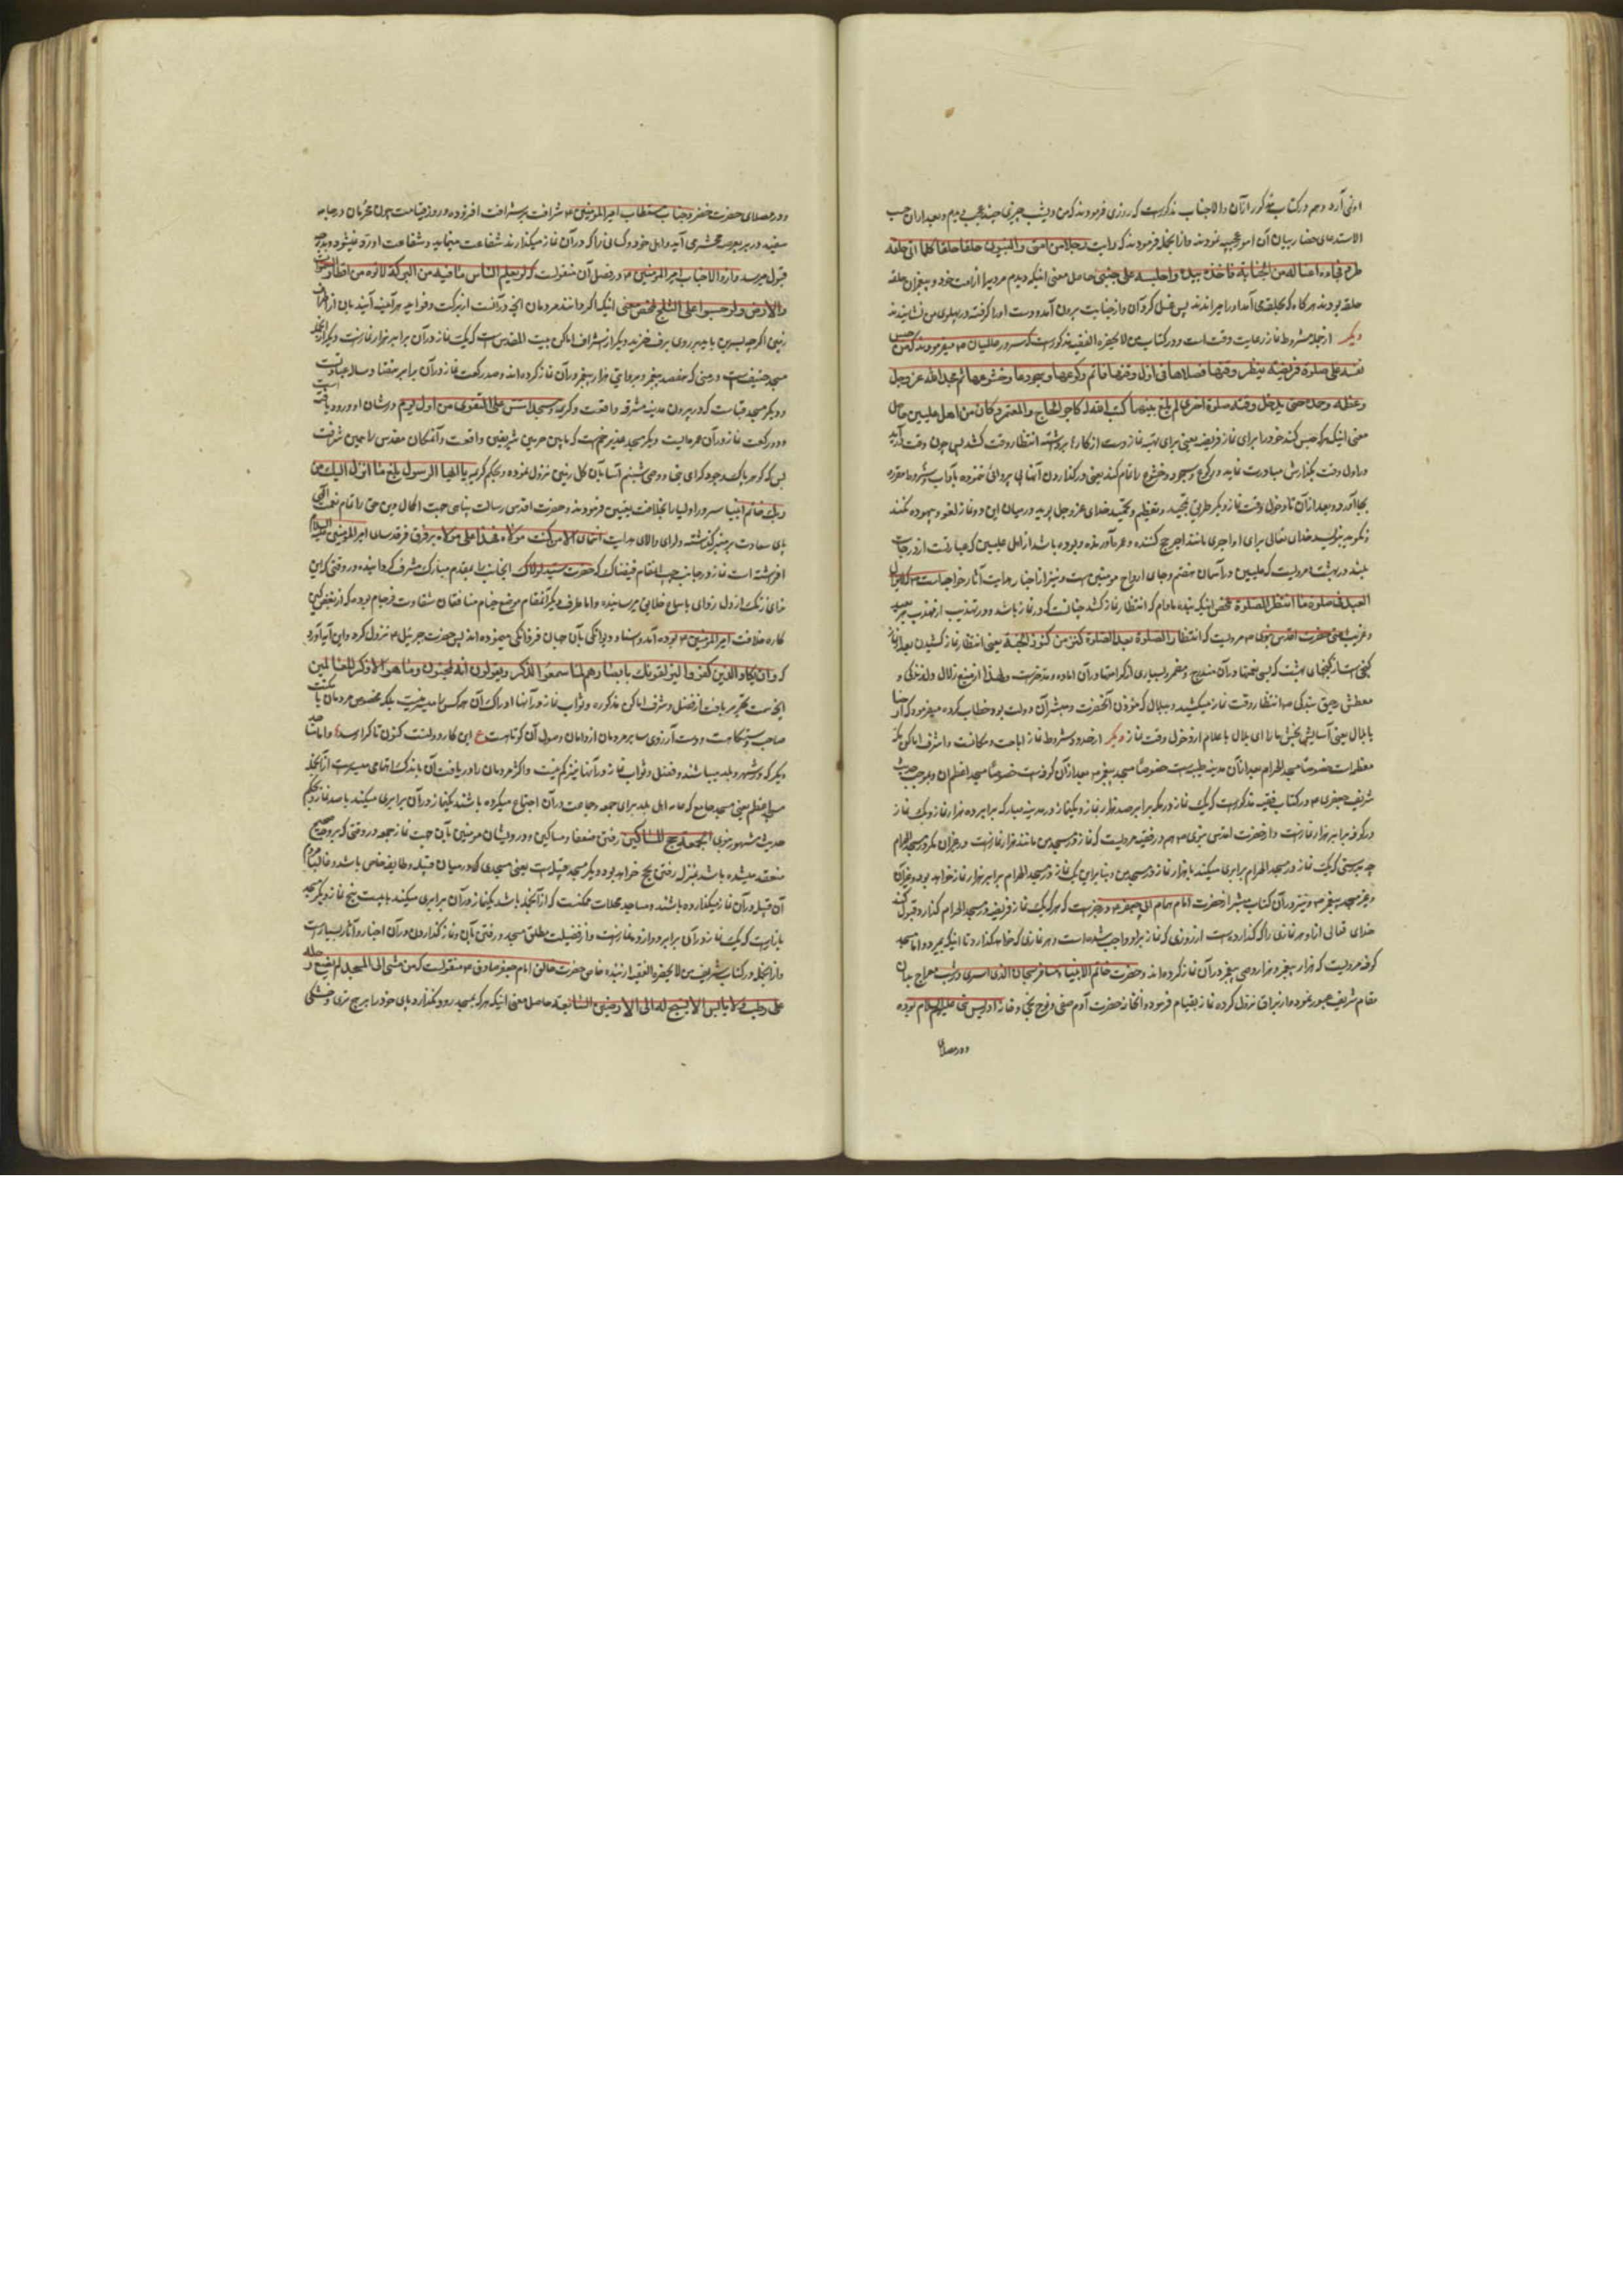 اولی آرد و هم در کتاب مذکور از آن والاجناب مذکورست که روزی فرمودند که من دیشب چیزی چند عجب دیدم و بعد از آن حسب
الاستدعای حضار بیان آن امور عجیبه نمودند و از آنجمله فرمودند که رایت رجلا من امتی والنبیون حلقا حلقا کلما اتی حلقه
طردوه فجاءه اغتساله من الجنابة فاخذ بیده واجلسه علی جنبی حاصل معنی اینکه دیدم مردیرا از امت خود و پیغمبران حلقه
حلقه بودند هر گاه که بحلقه می آمد او را میراندند پس غسل کردن او از جنابت بیرون آمده دست او را گرفته در پهلوی من نشانیدند
دیگر از جمله شروط نماز رعایت وقتست و در کتاب من لایحضره الفقیه مذکورست که سرور عالمیان ص میفرمودند که من حبس
نفسه علی صلوة فریضة ینتظر وقتها فصلاها فی اول وقتها فاتم رکوعها وسجودها وخشوعها ثم مجد الله عز وجل
وعظمه وحمده حتی یدخل وقت صلوة اخری لم یلغ بینهما کتب الله له کاجر الحاج والمعتمر وکان من اهل علیین حاصل
معنی اینکه هر که حبس کند خود را برای نماز فریضه یعنی برای تهیه نماز دست از کارها برداشته انتظار وقت کشد پس چون وقت درآید
در اول وقت بگزارش مبادرت نماید و رکوع و سجود و خشوع را تمام کند یعنی در گذاردن آنها بی پروائی ننموده بآداب مقرره
بجا آورد و بعد از آن تا دخول وقت نماز دیگر طریق تمجید و تعظیم و تحمید خدای عز وجل پوید و در میان این دو نماز لغو و بیهوده نکند
و نگوید بنویسد خدای تعالی برای او اجری مانند اجر حج کننده و عمره آورنده و بوده باشد از اهل علیین که عبارتست از درجات
بلند در بهشت مرویست که علیین در آسمان هفتم و جای ارواح مومنین است و نیز از اخبار هدایت آثار
العبد فی صلوة ما انتظر الصلوة ملخص اینکه بنده مادام که انتظار نماز کشد چنانست که در نماز باشد و در تهذیب
از حضرت اقدس نبوی ص مرویست که انتظار الصلوة بعد الصلوة کنز من کنوز الجنة یعنی انتظار نماز کشیدن بعد از نماز
گنجیست از گنجهای بهشت که بسی نعمتها در آن مندرج و مضمر و بسیاری از کرامتها در آن آماده و مدخرست
انتظار وقت نماز میکشید و ببلال که مؤذن آنحضرت و مبشر آن دولت بود خطاب کرده میفرمود که ارحنا
یا بلال یعنی آسایش بخش ما را ای بلال باعلام از دخول وقت نماز دیگر از حدود و شروط نماز اباحت مکانست و اشرف اماکن مکه
معظمه است خصوصا مسجد الحرام بعد از آن مدینه طیبه است خصوصا مسجد پیغمبر ص بعد از آن کوفه است خصوصا مسجد اعظم آن و بموجب حدیث
شریف جعفری ع در کتاب فقیه مذکورست که یک نماز در مکه برابر صد هزار نماز و یکنماز در مدینه مبارکه برابر ده هزار نماز و یک نماز
در کوفه برابر هزار نمازست و از حضرت اقدس نبوی ص هم در فقیه مرویست که نماز در مسجد من مانند هزار نمازست در غیر آن مگر در مسجد الحرام
چه بدرستی که یک نماز در مسجد الحرام برابری میکند با هزار نماز در مسجد من و بنا برین یک نماز در مسجد الحرام برابر هزار نماز خواهد بود در غیر آن
و غیر مسجد پیغمبر ص و نیز در آن کتاب مبشر از حضرت امام همام ابی جعفر ع مخبرست که هر که یک نماز فریضه در مسجد الحرام گذارد قبول کند
خدای تعالی از او هر نمازی را که گذارده است از روزی که نماز بر او واجب شده است و هر نمازی که خواهد گذارد تا اینکه بمیرد و اما مسجد
کوفه مرویست که هزار پیغمبر و هزار وصی پیغمبر در آن نماز کرده اند و حضرت خاتم الانبیاء مسافر سبحان الذی اسری در شب معراج بدان
مقام شریف عبور نموده از براق نزول کرده نماز بقیام فرموده و آنجا خانه حضرت آدم صفی و نوح نجی و خانه ادریس نبی علیهم السلام بوده
و در مصلای
و در مصلای حضرت خضر و جناب مستطاب امیر المومنین ع شرافت بر شرافت افزوده و روز قیامت چون محرمان در جامه
سفید در بر بعرصه محشر می آید و اهل خود و کسانی را که در آن نماز میگذارند شفاعت مینماید و شفاعت او رد نمیشود و بدرجه
قبول میرسد و از والاجناب امیر المومنین ع در فضل آن منقولست که لو یعلم الناس ما فیه من البرکة لاتوه من اقطار السموات
والارض ولو حبوا علی الثلج ملخص معنی اینکه اگر دانند مردمان آنچه در آنست از برکت و فواید هر آینه آیند بان از اطراف
زمین اگر چه بسرین یا سینه بر روی برف خزند و دیگر از اشراف اماکن بیت المقدس است که یک نماز در آن برابر هزار نمازست و دیگر از آنجمله
مسجد خیفست در منی که هفتصد پیغمبر و بروایتی هزار پیغمبر در آن نماز کرده اند و صد رکعت نماز در آن برابر هفتاد ساله عبادتست
و دیگر مسجد قباست که در بیرون مدینه مشرفه واقعست و کریمه لمسجد اسس علی التقوی من اول یوم در شان او ورود یافته
و دو رکعت نماز در آن عمره ایست دیگر مسجد غدیر خم است که مابین حرمین شریفین واقعست و آنمکان مقدس را همین شرافت
بس که نزول نموده و بحکم کریمه یا ایها الرسول بلغ ما انزل الیک من
ربک خاتم انبیا سرور اولیا را بخلافت تعیین فرمودند و حضرت اقدس رسالت پناهی جهت اکمال دین حق و اتمام نعمت الهی
پای سعادت بر منبر گذاشته و لوای والای هدایت انتمای الا من کنت مولاه فهذا علی مولاه بر فرق فرقد سای امیر المومنین علیه السلام
افراشته است نماز در جانب چپ آنمقام فیضناک که حضرت سید لولاک آنجانب را بقدم مبارک مشرف گردانیده در وقتی که این
ندای زنگ از دل زدای باسماع خلایق میرسانیده و اما طرف دیگر آنمقام موضع خیام منافقان شقاوت فرجام بوده که از بغض و کین
کاره خلافت امیر المومنین ع بوده آمده و اسناد دیوانگی بآن جهان فرزانگی مینموده اند پس حضرت جبرئیل ع نزول کرده و این آیه آورد
که وان یکاد الذین کفروا لیزلقونک بابصارهم لما سمعوا الذکر ویقولون انه لمجنون وما هو الا ذکر للعالمین
آنچه سمت تحریر یافت از فضل و شرف اماکن مذکوره و ثواب نماز در آنها ادراک آن هر کس را میسر نیست بلکه مخصوص مردمان با مکنت
صاحب دستگاهست و دست آرزوی سایر مردمان از دامان وصول آن کوتاهست ع این کار دولتست کنون تا کرا رسد و اما مساجد
دیگر که در شهر و بلد میباشند و فضل و ثواب نماز در آنها نیز کم نیست و اکثر مردمان را دریافت آن باندک اهتمامی میسرست از آنجمله
مسجد اعظم یعنی مسجد جامع که عامه اهل بلد برای جمعه و جماعت در آن اجتماع میکرده باشند یکنماز در آن برابری میکند با صد نماز و بحکم
حدیث مشهور نبوی الجمعة حج المساکین رفتن ضعفا و مساکین و درویشان مومنین بآن جهت نماز جمعه در وقتی که بر وجه صحیح
منعقد میشده باشد بمنزله رفتن بحج خواهد بود و دیگر مسجد قبیله است یعنی مسجدی که در میان قبیله و طایفه خاصی باشد و غالبا مردم
آن قبیله در آن نماز میگذارده باشند و مساجد محلات ممکنست که از آنجمله باشد یکنماز در آن برابری میکند با بیست و پنج نماز و دیگر مسجد
بازارست که یک نماز در آن برابر دوازده نمازست و از فضیلت مطلق مسجد و رفتن بآن و نماز گذاردن در آن اخبار و آثار بسیارست
و از آنجمله در کتاب شریف من لایحضره الفقیه از بنده خاص حضرت خالق امام جعفر صادق ع منقولست که من مشی الی المسجد لم یضع رجله
علی رطب ولا یابس الا سبح له الی الارضین السابعة حاصل معنی اینکه هر که بمسجد رود نگذارد پای خود را بر هیچ تری و خشکی